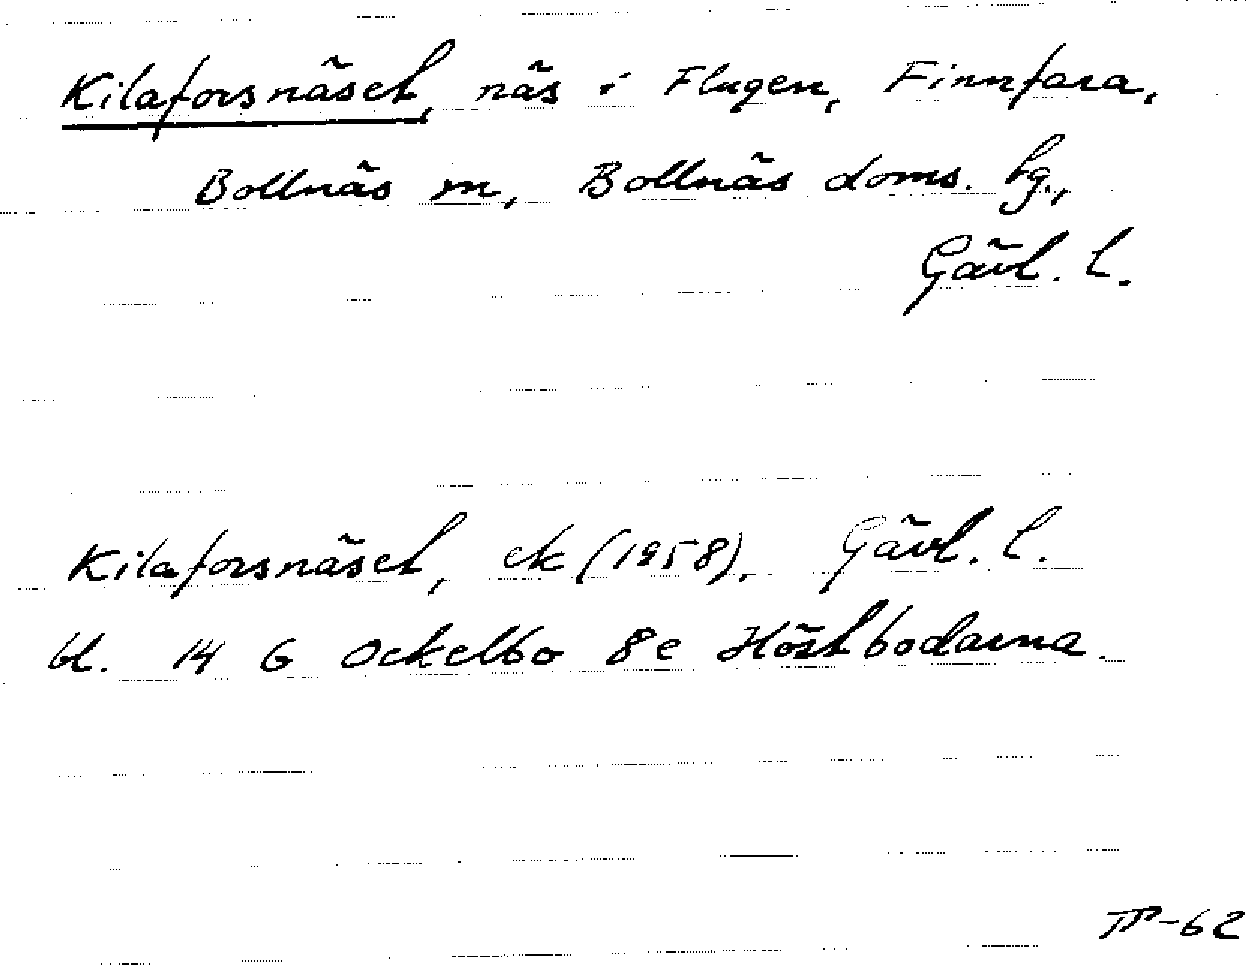 Kilaforsnäset, näs i Flugen, Finnfara,
Bollnäs m, Bollnäs doms. hg.,
Gävl. l.
Kilaforsnäset, ek (1958), Gävl. l.
bl. 14 G Ockelbo 8e Höstbodarna.
TP-62